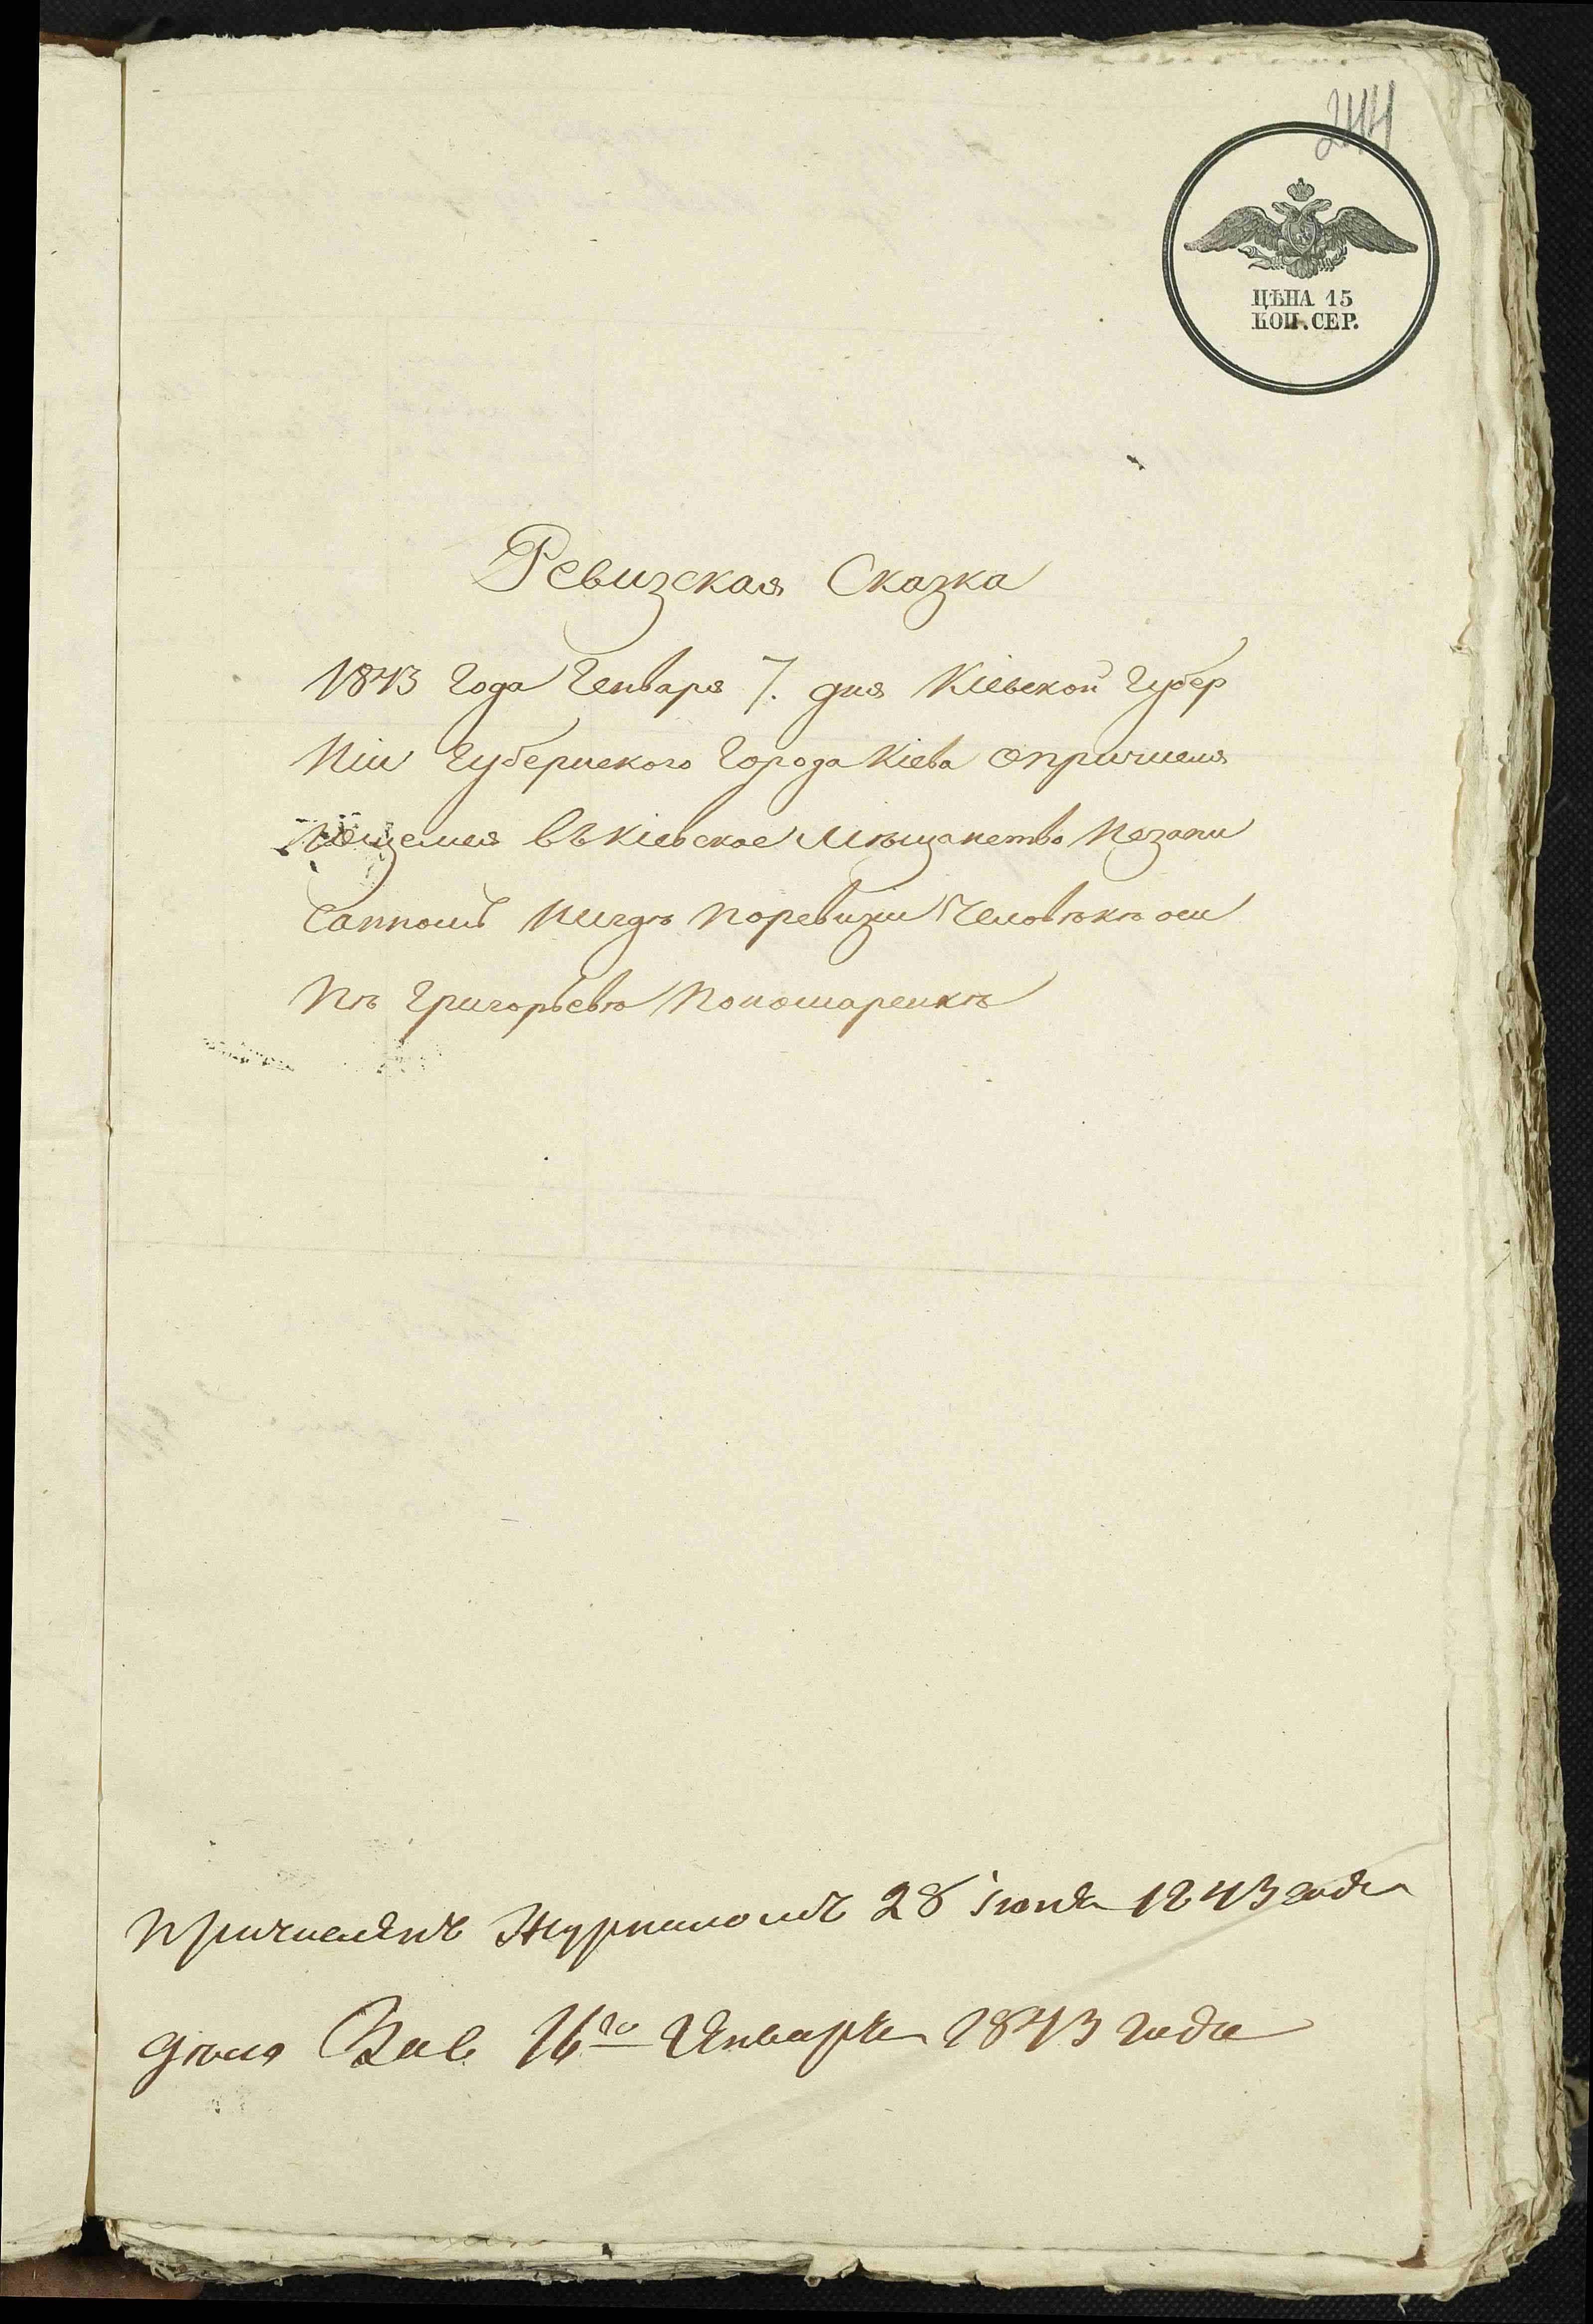 244
ЦѢНА 15
КОП. СЕР.
Ревизская Сказка
1843 года Генваря 7. дня Кіевской Губер
ніи Губернского Города Кіева опричисля
ющемся въ Кіевское Мѣщанство незапи
санномъ нигдѣ поревизіи Человѣкѣ оси
пѣ Григорьевѣ Пономаренкѣ
Причисленъ Журналомъ 28 Іюня 1843 года
16го Января 1843 года